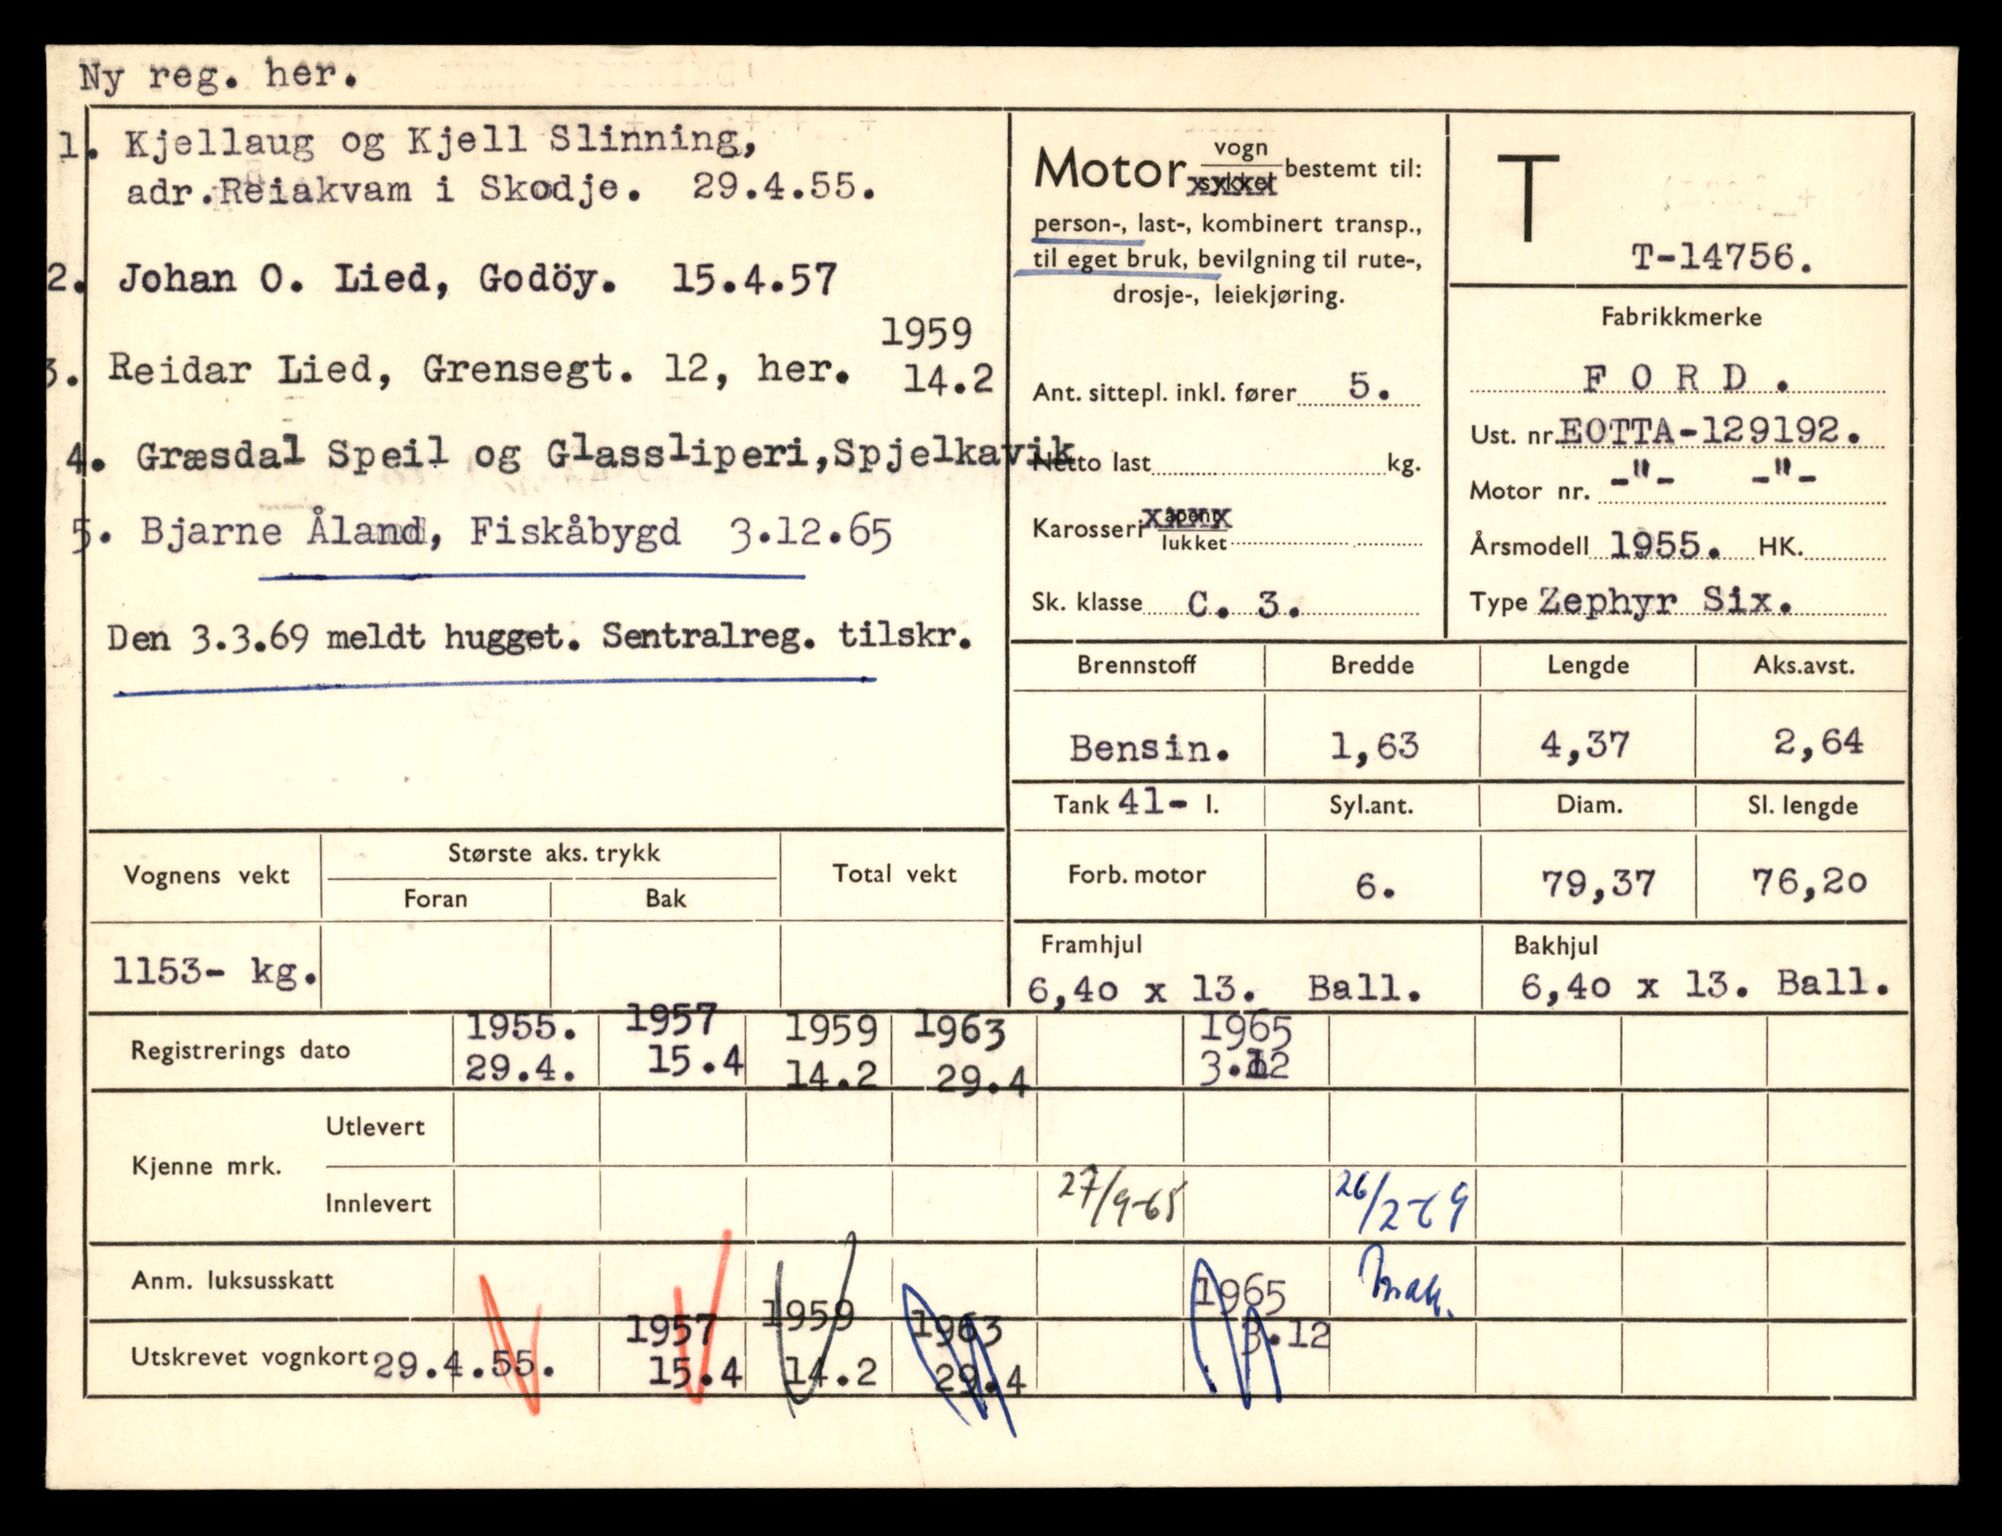 Ny reg. her.
1. Kjellaug og Kjell Slinning,
adr.Reiakvam i Skodje. 29.4.55.
2. Johan O. Lied, Godöy. 15.4.57
1959
3. Reidar Lied, Grensegt. 12, her. 14.2
4. Græsdal Speil og Glassliperi,Spjelkavik
5. Bjarne Åland, Fiskåbygd 3.12.65
Den 3.3.69 meldt hugget. Sentralreg. tilskr.
Motor vogn sykkel bestemt til:
person-, last-, kombinert transp.,
til eget bruk, bevilgning til rute-,
drosje-, leiekjøring.
Ant. sittepl. inkl. fører 5.
Netto last kg.
Karosseri åpent
lukket
Sk. klasse C. 3.
T
T-14756.
Fabrikkmerke
F O R D .
Ust. nr. EOTTA-129192.
Motor nr. -"- -"-
Årsmodell 1955. HK.
Type Zephyr Six.
Brennstoff Bredde Lengde Aks.avst.
Bensin. 1,63 4,37 2,64
Tank 41- l. Syl.ant. Diam. Sl. lengde
Forb. motor 6. 79,37 76,20
Framhjul Bakhjul
6,40 x 13. Ball. 6,40 x 13. Ball.
Vognens vekt Største aks. trykk Total vekt
Foran Bak
1153- kg.
Registrerings dato 1955. 1957 1959 1963 1965
29.4. 15.4 14.2 29.4 3.12
Kjenne mrk. Utlevert
Innlevert 27/9-65 26/2-69
Anm. luksusskatt
Utskrevet vognkort 29.4.55. 1957 1959 1963 1965
15.4 14.2 29.4 3.12